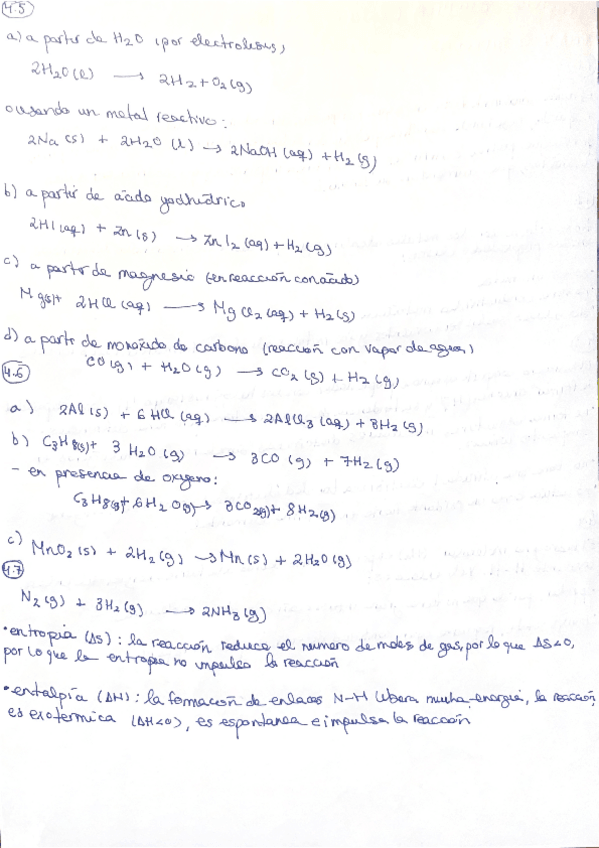 4.5
a) a partir de H2O (por electrolisis)
2H2O(l) → 2H2 + O2(g)
o usando un metal reactivo:
2Na(s) + 2H2O(l) → 2NaOH(aq) + H2(g)
b) a partir de ácido yodhídrico
2HI(aq) + Zn(s) → ZnI2(aq) + H2(g)
c) a partir de magnesio (en reacción con ácido)
Mg(s) + 2HCl(aq) → MgCl2(aq) + H2(g)
d) a partir de monóxido de carbono (reacción con vapor de agua)
CO(g) + H2O(g) → CO2(g) + H2(g)
4.6
a) 2Al(s) + 6HCl(aq) → 2AlCl3(aq) + 3H2(g)
b) C3H8(g) + 3H2O(g) → 3CO(g) + 7H2(g)
- en presencia de oxígeno:
C3H8(g) + 6H2O(g) → 3CO2(g) + 8H2(g)
c) MnO2(s) + 2H2(g) → Mn(s) + 2H2O(g)
4.7
N2(g) + 3H2(g) → 2NH3(g)
• entropía (ΔS): la reacción reduce el numero de moles de gas, por lo que ΔS<0,
por lo que la entropía no impulsa la reacción
• entalpía (ΔH): la formación de enlaces N-H libera mucha energía, la reacción
es exotérmica (ΔH<0), es espontanea e impulsa la reacción